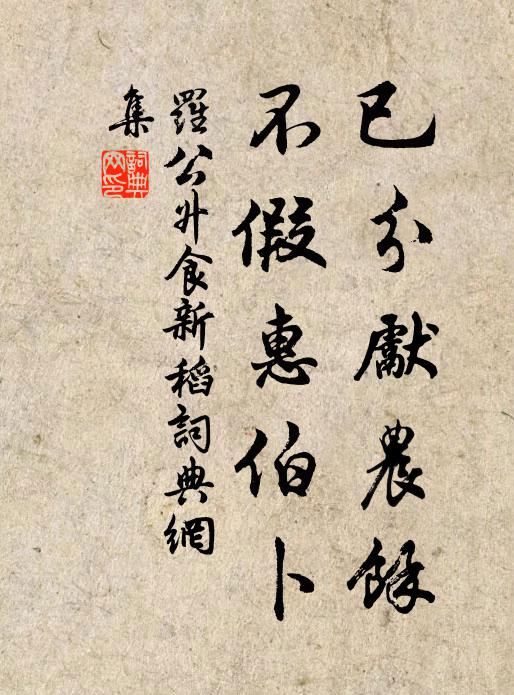 已分獻農餘
不假惠伯卜
羅公升食新稻詞典網
集
詞典
网印